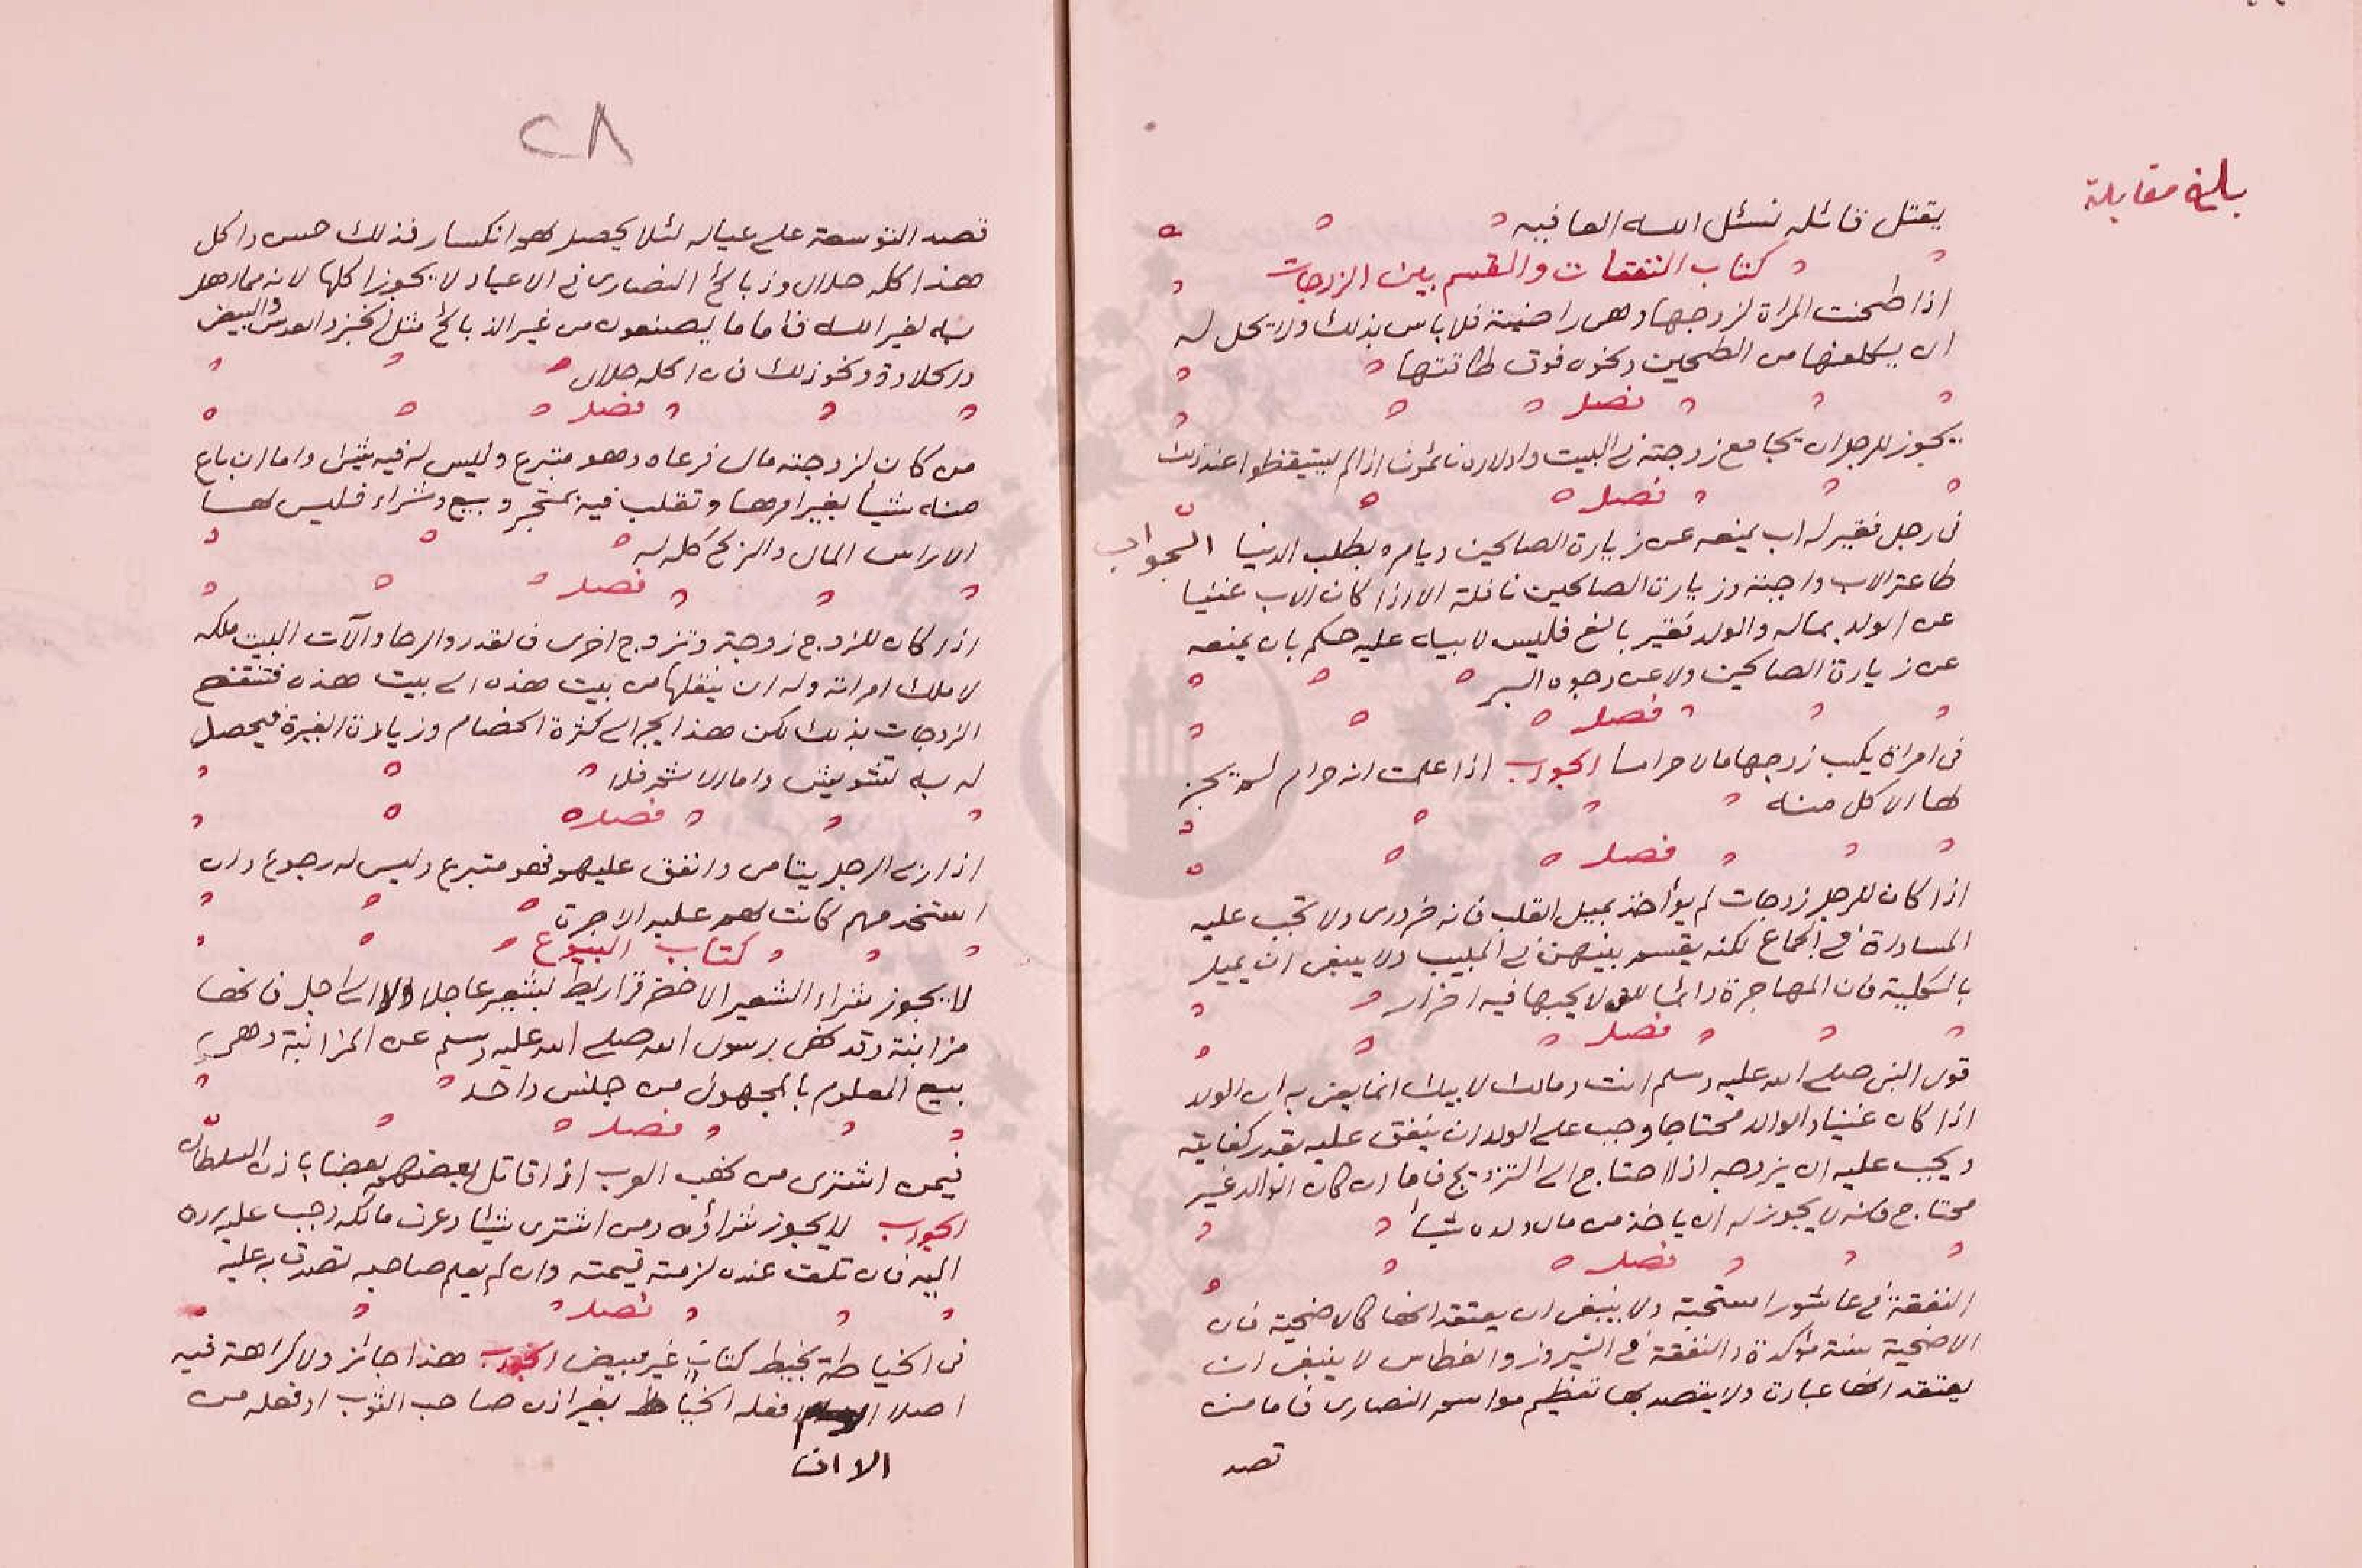 بلغ مقابلة
يقتل قائله نسئل الله العافيه
كتاب النفقات والقسم بين الزوجات
اذا طحنت المراة لزوجها وهى راضية فلا باس بذلك ولا يحل له
ان يكلفها من الطحين ونحوه فوق طاقتها
فصل
يجوز للرجل ان يجامع زوجته فى البيت واولاده نائمون اذا لم يستيقظوا عند ذلك
فصل
فى رجل فقير له اب يمنعه عن زيارة الصالحين ويامره بطلب الدنيا الجواب
طاعة الاب واجبة وزيارة الصالحين نافلة الا اذا كان الاب غنيا
عن الولد بماله والولد فقير بالغ فليس لابيه عليه حكم بان يمنعه
عن زيارة الصالحين ولا عن وجوه البر
فصل
فى امراة يكسب زوجها مالا حراما الجواب اذا علمت انه حرام لم يجز
لها الاكل منه
فصل
اذا كان للرجل زوجات لم يؤاخذ بميل القلب فانه ضرورى ولا تجب عليه
المساواة فى الجماع لكنه يقسم بينهن فى المبيت ولا ينبغى ان يميل
بالكلية فان المهاجرة دائما للتى لا يحبها فيه اضرار
فصل
قول النبى صلى الله عليه وسلم انت ومالك لابيك انما يعنى به ان الولد
اذا كان غنيا والوالد محتاجا وجب على الولد ان ينفق عليه بقدر كفايته
ويجب عليه ان يزوجه اذا احتاج الى التزويج فاما ان كان الوالد غير
محتاج فانه لا يجوز له ان ياخذ من مال ولده شيأ
فصل
النفقة فى عاشورا مستحبة ولا ينبغى ان يعتقد انها كالاضحية فان
الاضحية سنة مؤكدة والنفقة فى النيروز والغطاس لا ينبغى ان
يعتقد انها عبادة ولا يقصد بها تعظيم مواسم النصارى فاما من
قصد
٢٨
قصد التوسعة على عياله لئلا يحصل لهم انكسار فذلك حسن واكل
هذا كله حلال وذبائح النصارى فى الاعياد لا يجوز اكلها لانه مما اهل
به لغير الله فاما ما يصنعون من غير الذبائح مثل الخبز والعدس والبيض
والحلاوة ونحو ذلك فان اكله حلال
فصل
من كان لزوجته مال فرعاه وهو متبرع وليس له فيه شئ واما ان باع
منه شيأ بغير امرها وتقلب فيه بمتجر وبيع وشراء فليس لها
الا راس المال والربح كله له
فصل
اذا كان للزوج زوجة وتزوج اخرى فالقدر والرحا وآلات البيت ملكه
لا ملك امراته وله ان ينقلها من بيت هذه الى بيت هذه فتنتفع
الزوجات بذلك لكن هذا يجر الى كثرة الخصام وزيادة الغيرة فيحصل
له به تشويش واما الاثم فلا
فصل
اذا ربى الرجل يتامى وانفق عليهم فهو متبرع وليس له رجوع وان
استخدمهم كانت لهم عليه الاجرة
كتاب البيوع
لا يجوز شراء الشعير الاخضر قراريط بشعير عاجلا ولا الى اجل فانها
مزابنة وقد نهى رسول الله صلى الله عليه وسلم عن المزابنة وهى
بيع المعلوم بالمجهول من جنس واحد
فصل
فيمن اشترى من نهب العرب اذا قاتل بعضهم بعضا باذن السلطان
الجواب لا يجوز شراؤه ومن اشترى شيئا وعرف مالكه وجب عليه رده
اليه فان تلف عنده لزمته قيمته وان لم يعلم صاحبه تصدق به عليه
فصل
فى الخياطة بخيط كتان غير مبيض الجواب هذا جائز ولا كراهة فيه
اصلا فعله الخياط بغير اذن صاحب الثوب او فعله من
الا ان